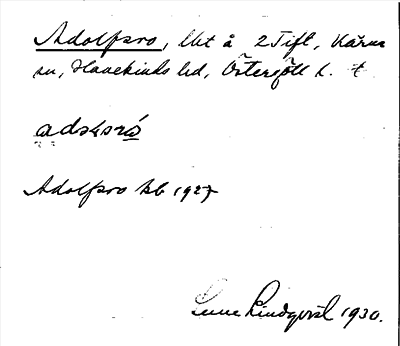 Adolfsro, lht å 2 Tift, Kärna
sn, Hanekinds hd, Östergötl l. t
adsksró
Adolfsro kb 1927
Sune Lindqvist 1930.